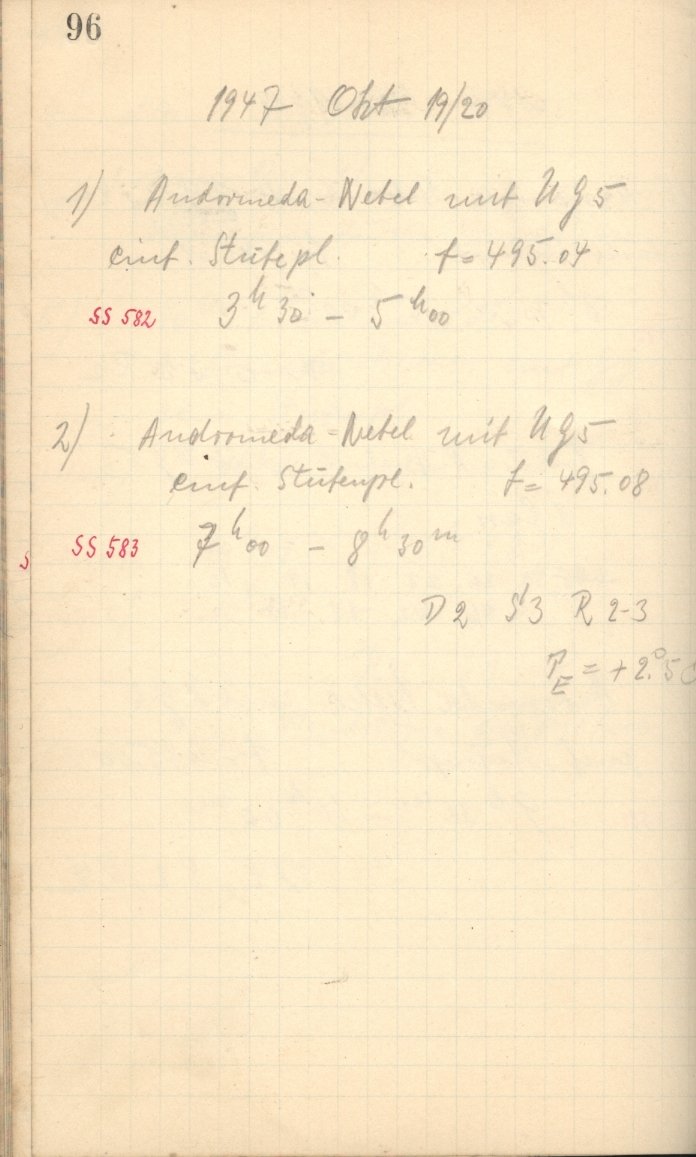 96
1947 Okt 19/20
1) Andromeda-Nebel mit UG5
einf. Stufepl. f = 495.04
SS 582 3h 30 - 5h00
2) Andromeda-Nebel mit UG5
einf. Stufenpl. f = 495.08
S SS 583 7h00 - 8h30m
D2 S3 R 2-3
= +2.°5 C